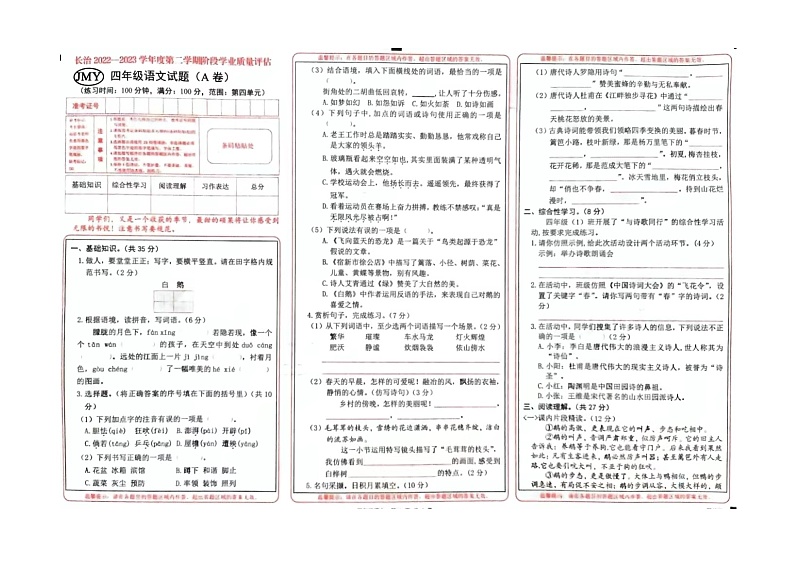 长治2022—2023学年度第二学期阶段学业质量评估
JMY 四年级语文试题（A卷）
(练习时间：100分钟，满分：100分，范围：第四单元)
准考证号
注意事项
条码粘贴处
基础知识 综合性学习 阅读理解 习作表达 总分
同学们，又是一个收获的季节，最甜的硕果将让你感受到
无限的书悦！注意书写要规范。
一、基础知识。(共35分)
1.做人，要堂堂正正；写字，要横平竖直。请在田字格内规
范书写。(2分)
白 鹅
2.根据语境，读拼音，写词语。(6分)
朦胧的月色下，fān xīng（ ）若隐若现，像一个
个tān wán（ ）的孩子，在天空中到处duǒ cáng
（ ）。远处的江面上一片jì jìng（ ），衬着月
色，gòu chéng（ ）了一幅唯美的hé xié（ ）
的图画。
3.选择题。(将正确答案的序号填在下面的括号里)(共10
分)
(1)下列加点字的注音有误的一项是（ ）。
A.胆怯(qiè) 狂吠(fèi) 澎湃(pài) 开辟(pì)
C.倘若(tǎng) 乒乓(pāng) D.槐树(huái) 遭殃(yāng)
(2)下列书写正确的一项是（ ）。
A.花盆 冰箱 滨馆 B.蹲下 和谐 脚止
C.蔬菜 灰尘 预防 D.丰顿 装饰 照列
温馨提示：请在各题目的答题区域内作答，超出答题区域的答案无效。
温馨提示：请在各题目的答题区域内作答，超出答题区域的答案无效。
(3)结合语境，填入下面横线处的词语，最恰当的一项是（ ）。
街角处的二胡曲低回哀转，______，让人听了十分伤感。
A.如梦如幻 B.如怨如诉 C.如火如荼 D.如诗如画
(4)下列句子中，加点的词语或诗句使用正确的一项是
（ ）。
A.老王工作时总是踏踏实实、勤勤恳恳，他常戏称自己
是大家的领头羊。
B.玻璃瓶看起来空空如也，其实里面装满了某种透明气
体，遇火就会燃烧。
C.学校运动会上，他扬长而去，遥遥领先，最终获得了
冠军。
D.看着运动员在赛场上奋力拼搏，教练不禁感叹：“真是
无限风光尽被占啊！”
(5)下列说法有误的一项是（ ）。
A.《飞向蓝天的恐龙》是一篇关于“鸟类起源于恐龙”
假说的文章。
B.《宿新市徐公店》中描写了篱落、小径、树荫、菜花、
儿童、黄蝶等景物，别有风趣。
C.诗人艾青通过《绿》赞美了大自然的美。
D.《白鹅》中作者运用反语的手法，来表现自己对鹅的
喜爱之情。
4.赏析句子，完成练习。(7分)
(1)从下列词语中，至少选两个词语描写一个场景。(2分)
繁华 璀璨 车水马龙 灯火辉煌
肥沃 静谧 炊烟袅袅 依山傍水
(2)春天的早晨，怎样的可爱呢！融冶的风，飘扬的衣袖，
静悄的心情。(仿写诗句)(3分)
乡村的傍晚，怎样的美丽呢！
(3)毛茸茸的枝头，雪绣的花边潇洒，串串花穗齐绽，洁白
的流苏如画。
这一小节运用特写镜头描写了“毛茸茸的枝头”，
我仿佛看到______的画面，感受到
白桦树______的特点。(2分)
5.名句采撷，日积月累填空。(10分)
温馨提示：请在各题目的答题区域内作答，超出答题区域的答案无效。
温馨提示：请在各题目的答题区域内作答，超出答题区域的答案无效。
(1)唐代诗人罗隐用诗句“______，
______”赞美蜜蜂的辛勤与无私奉献。
(2)唐代诗人杜甫在《江畔独步寻花》中通过“______
______，______”这两句诗描绘出春
天桃花怒放的美景。
(3)古典诗词能带领我们领略四季变换的美丽。暮春时节，
篱笆小路，枝叶新绿，那是杨万里笔下的“______
______，______”。初夏，梅杏挂枝，
花开花稀，那是范成大笔下的“______，
______”。冰天雪地里，梅花俏立枝头，
却“俏也不争春，______，待到山花烂
漫时，______”。
二、综合性学习。(8分)
四年级（1）班开展了“与诗歌同行”的综合性学习活
动，按要求完成练习。
1.请你仿照示例，给此次活动设计两个活动环节。(4分)
示例：举办诗歌朗诵会
2.在活动中，班级仿照《中国诗词大会》的“飞花令”，设
置了关键字“春”。请你写两句带有“春”字的诗词。(2
分)
3.在活动中，同学们搜集了许多诗人的信息，下列说法不正
确的一项是（ ）(2分)
A.小李：李白是唐代伟大的浪漫主义诗人，世人称其为
“诗仙”。
B.小阳：杜甫是唐代伟大的现实主义诗人，被誉为“诗
圣”。
C.小红：陶渊明是中国田园诗的鼻祖。
D.小张：王维是宋代著名的山水田园派诗人。
三、阅读理解。(共27分)
<一>课内片段精读。(12分)
①鹅的高傲，更表现在它的叫声、步态和吃相中。
②鹅的叫声，音调严肃郑重，似厉声呵斥。它的旧主人
告诉我：养鹅等于养狗，它也能看守门户。后来我看到果然
如此：凡有生客进来，鹅必然厉声叫嚣；甚至篱笆外有人走
路，它也要引吭大叫，不亚于狗的狂吠。
③鹅的步态，更是傲慢了。大体上与鸭相似，但鸭的步
调急速，有局促不安之相；鹅的步调从容，大模大样的，颇
温馨提示：请在各题目的答题区域内作答，超出答题区域的答案无效。